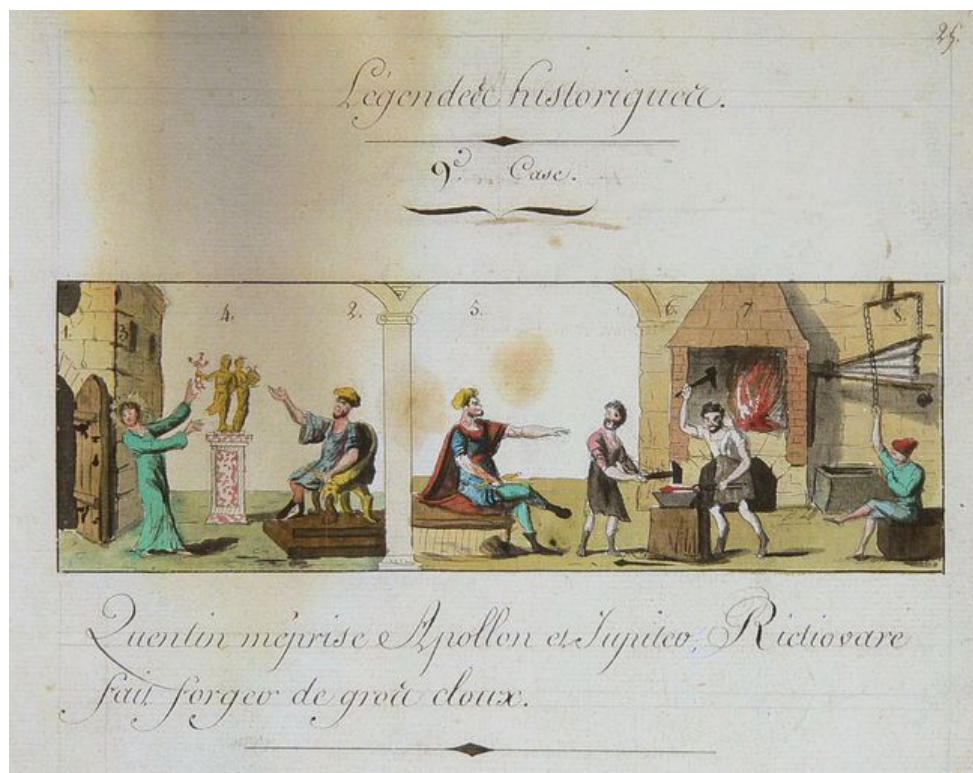 25.
Légendes historiques.
9e. Case.
1. 3. 4. 2. 5. 6. 7 8.
Quentin méprise Apollon et Jupiter, Rictiovare
fait forger de gros cloux.